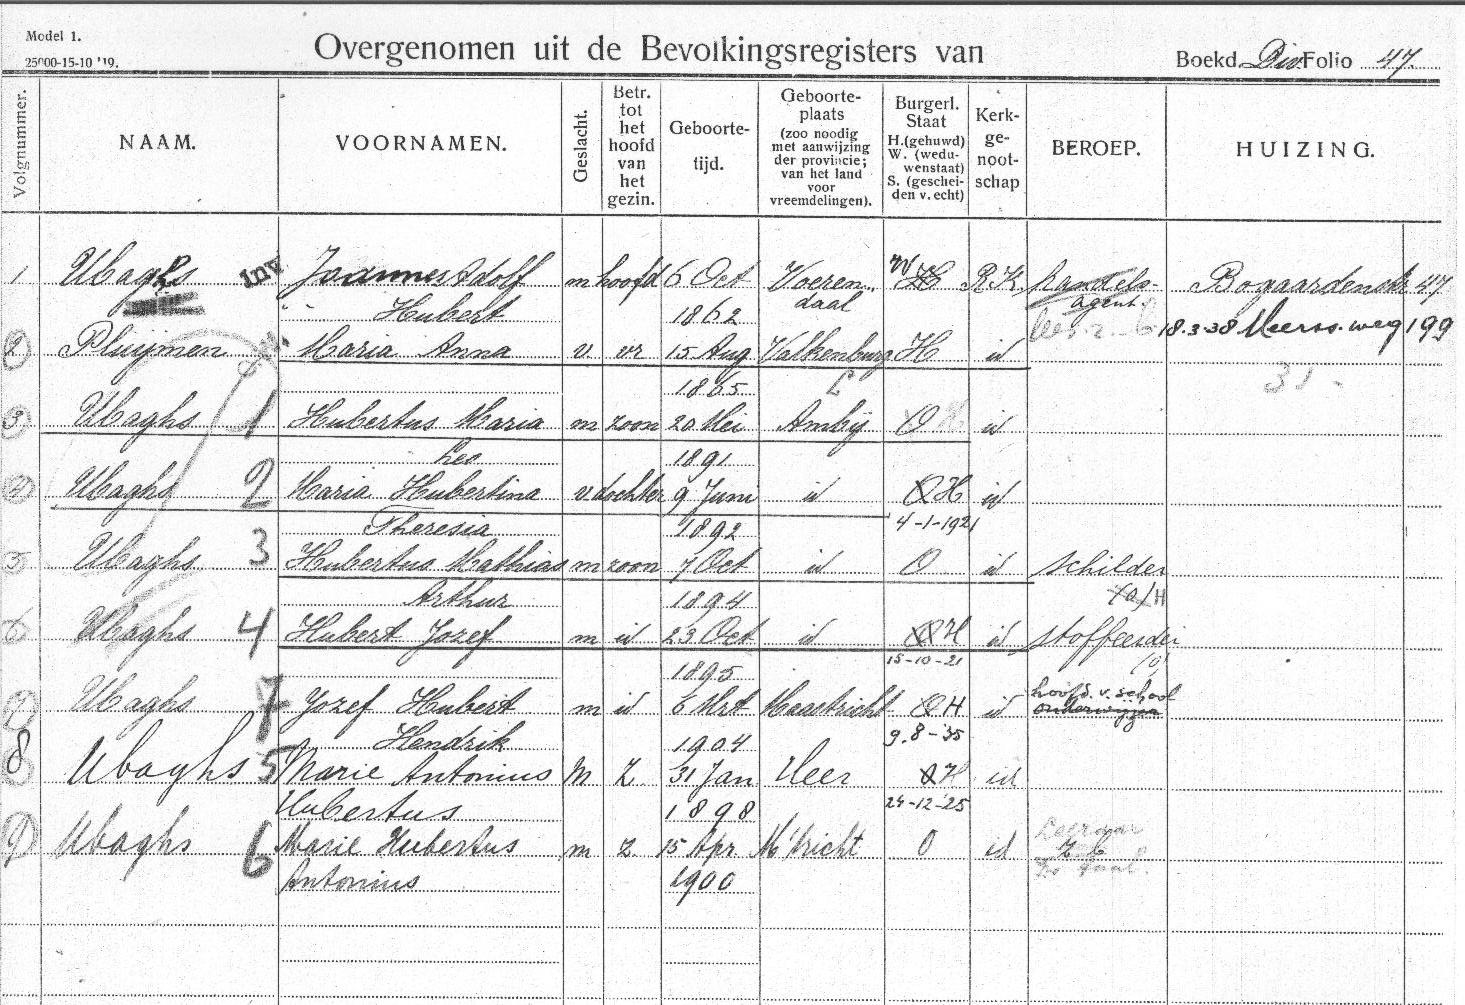 Model 1.
25000-15-10 '19.
Overgenomen uit de Bevolkingsregisters van
Boekd. Div Folio 47.
Volgnummer.
NAAM.
VOORNAMEN.
Geslacht.
Betr. tot het hoofd van het gezin.
Geboorte-tijd.
Geboorte-plaats (zoo noodig met aanwijzing der provincie; van het land voor vreemdelingen).
Burgerl. Staat H.(gehuwd) W. (wedu-wenstaat) S. (geschei-den v. echt)
Kerk-ge-noot-schap
BEROEP.
HUIZING.
1 Ubaghs Inv Joannes Adolf m hoofd 6 Oct Voeren- W H R.K. handels- Bogaardenstr 47
Hubert 1862 daal agent 18.3.38 Meerss. weg 199
2 Pluijmen Maria Anna v. vr 15 Aug Valkenburg H id
1865 L 31
3 Ubaghs 1 Hubertus Maria m zoon 20 Mei Amby O H id
Leo 1891
4 Ubaghs 2 Maria Hubertina v dochter 9 Juni id O H id
Theresia 1892 4-1-1921
5 Ubaghs 3 Hubertus Mathias m zoon 7 Oct id O id schilder
Arthur 1894
6 Ubaghs 4 Hubert Jozef m id 23 Oct id H id stoffeerder
1895 15-10-21
7 Ubaghs 7 Jozef Hubert m id 6 Mrt Maastricht O H id hoofd. v. school
onderwijzer
Hendrik 1904 9.8-35
8 Ubaghs 5 Marie Antonius M Z. 31 Jan Heer O H id
Hubertus 1898 24-12-25
9 Ubaghs 6 Marie Hubertus m z. 15 Apr M'tricht O id Leeraar
Antonius 1900